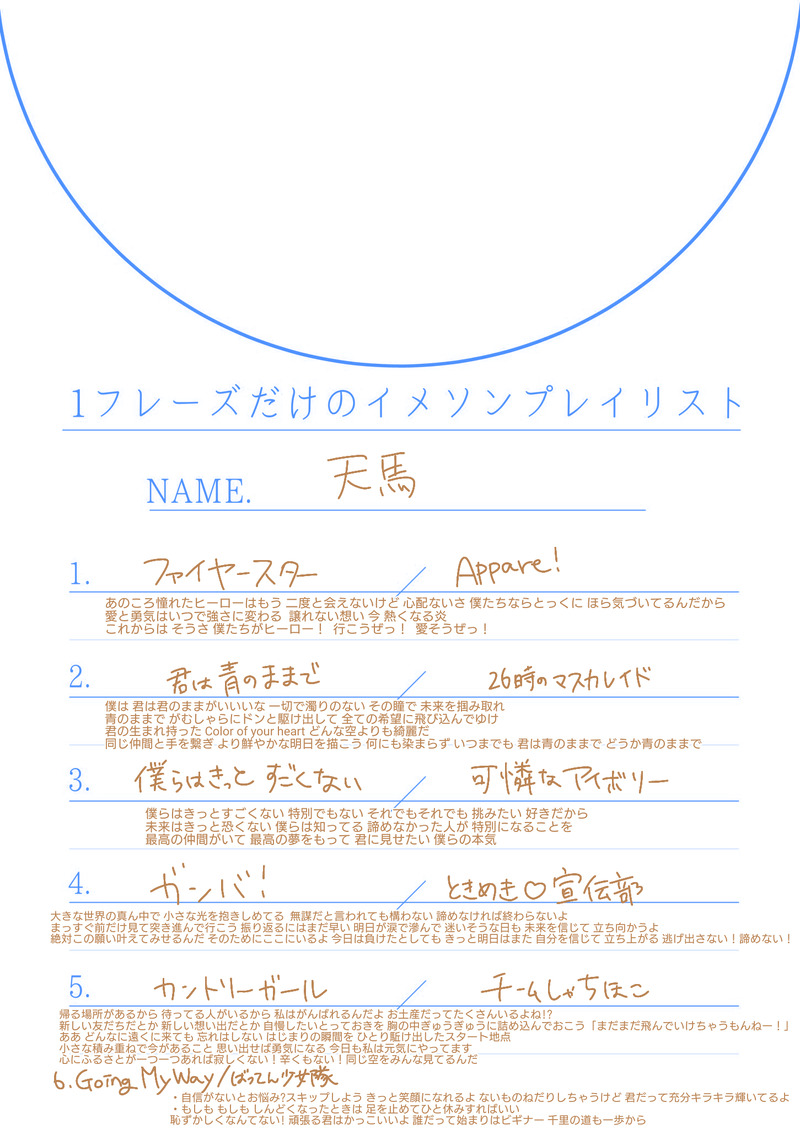 1フレーズだけのイメソンプレイリスト
NAME. 天馬
1. ファイヤースター / Appare!
あのころ憧れたヒーローはもう 二度と会えないけど 心配ないさ 僕たちならとっくに ほら気づいてるんだから
愛と勇気はいつで強さに変わる 譲れない想い 今 熱くなる炎
これからは そうさ 僕たちがヒーロー！ 行こうぜっ！ 愛そうぜっ！
2. 君は青のままで / 26時のマスカレイド
僕は 君は君のままがいいいな 一切で濁りのない その瞳で 未来を掴み取れ
青のままで がむしゃらにドンと駆け出して 全ての希望に飛び込んでゆけ
君の生まれ持った Color of your heart どんな空よりも綺麗だ
同じ仲間と手を繋ぎ より鮮やかな明日を描こう 何にも染まらず いつまでも 君は青のままで どうか青のままで
3. 僕らはきっと すごくない / 可憐なアイボリー
僕らはきっとすごくない 特別でもない それでもそれでも 挑みたい 好きだから
未来はきっと恐くない 僕らは知ってる 諦めなかった人が 特別になることを
最高の仲間がいて 最高の夢をもって 君に見せたい 僕らの本気
4. ガンバ! / ときめき♡宣伝部
大きな世界の真ん中で 小さな光を抱きしめてる 無謀だと言われても構わない 諦めなければ終わらないよ
まっすぐ前だけ見て突き進んで行こう 振り返るにはまだ早い 明日が涙で滲んで 迷いそうな日も 未来を信じて 立ち向かうよ
絶対この願い叶えてみせるんだ そのためにここにいるよ 今日は負けたとしても きっと明日はまた 自分を信じて 立ち上がる 逃げ出さない！諦めない！
5. カントリーガール / チームしゃちほこ
帰る場所があるから 待ってる人がいるから 私はがんばれるんだよ お土産だってたくさんいるよね!?
新しい友だちだとか 新しい想い出だとか 自慢したいとっておきを 胸の中ぎゅうぎゅうに詰め込んでおこう「まだまだ飛んでいけちゃうもんねー！」
ああ どんなに遠くに来ても 忘れはしない はじまりの瞬間を ひとり駆け出したスタート地点
小さな積み重ねで今があること 思い出せば勇気になる 今日も私は元気にやってます
心にふるさとが一つ一つあれば寂しくない！辛くもない！同じ空をみんな見てるんだ
6. Going My Way/ばってん少女隊
・自信がないとお悩み?スキップしよう きっと笑顔になれるよ ないものねだりしちゃうけど 君だって充分キラキラ輝いてるよ
・もしも もしも しんどくなったときは 足を止めてひと休みすればいい
恥ずかしくなんてない！頑張る君はかっこいいよ 誰だって始まりはビギナー 千里の道も一歩から